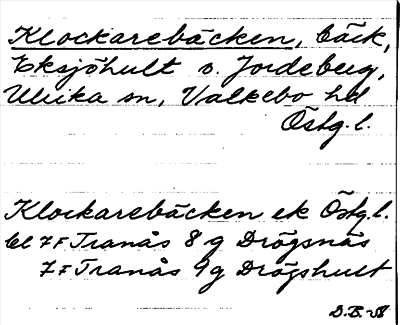 Klockarebäcken, bäck,
Eksjöhult o. Jordeberg,
Ulrika sn, Valkebo hd
Östg. l.
Klockarebäcken ek Östg. l.
bl 7F Tranås 8 g Drögsnäs
7F Tranås 9 g Drögshult
D.B.-A